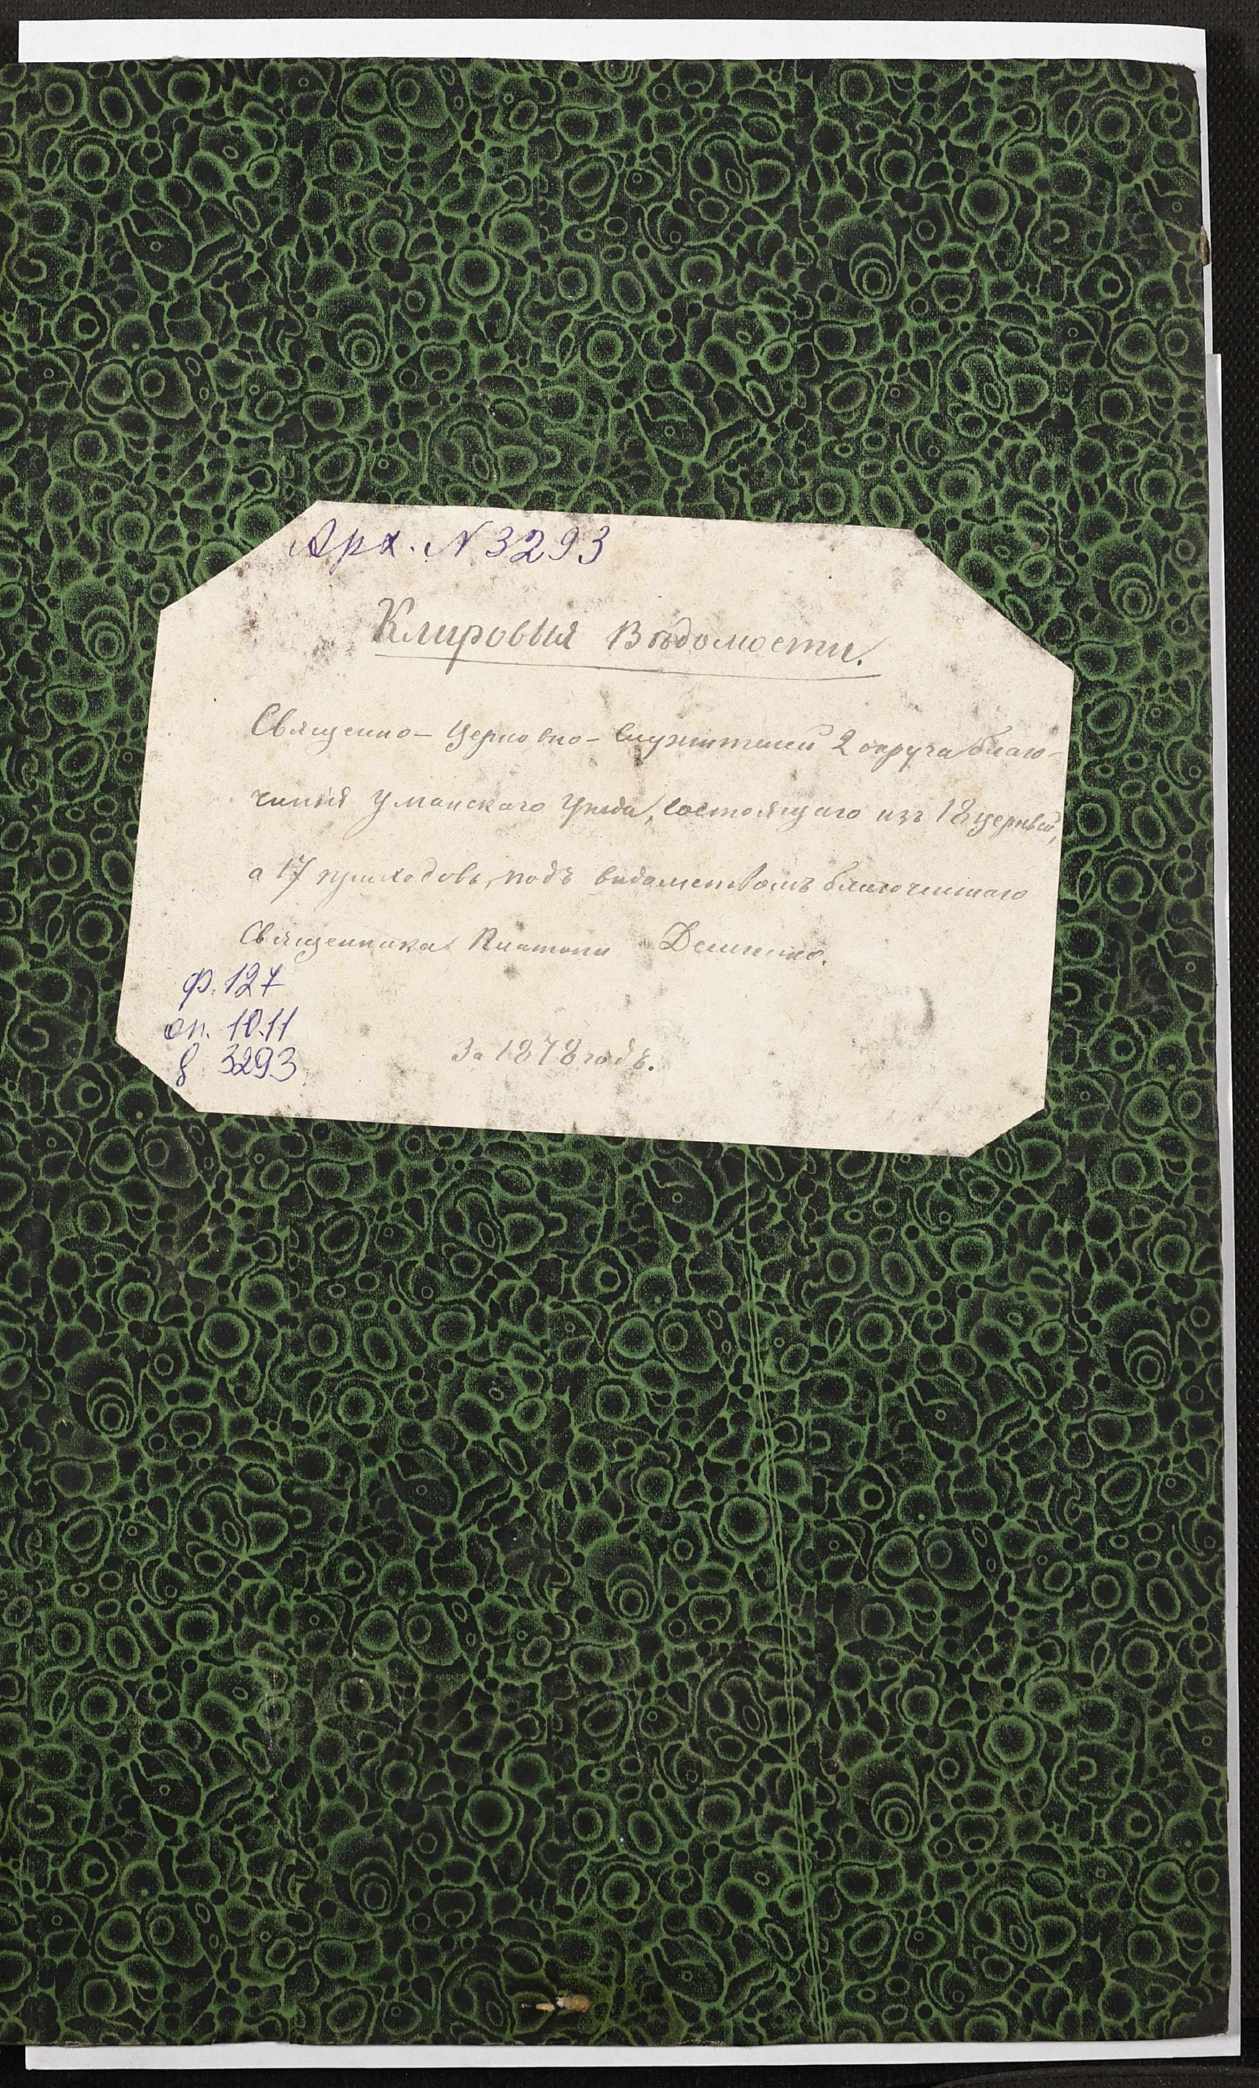 Арх. N 3293
Клировыя Вѣдомости.
Священно-Церковно-Служителей 2 округа благо-
чинія Уманскаго Уѣзда, состоящаго изъ 18 церквей,
а 17 приходовъ, подъ вѣдомствомъ благочиннаго
Священника Платона
ф. 127
оп. 1011
д 3293
За 1878 годъ.